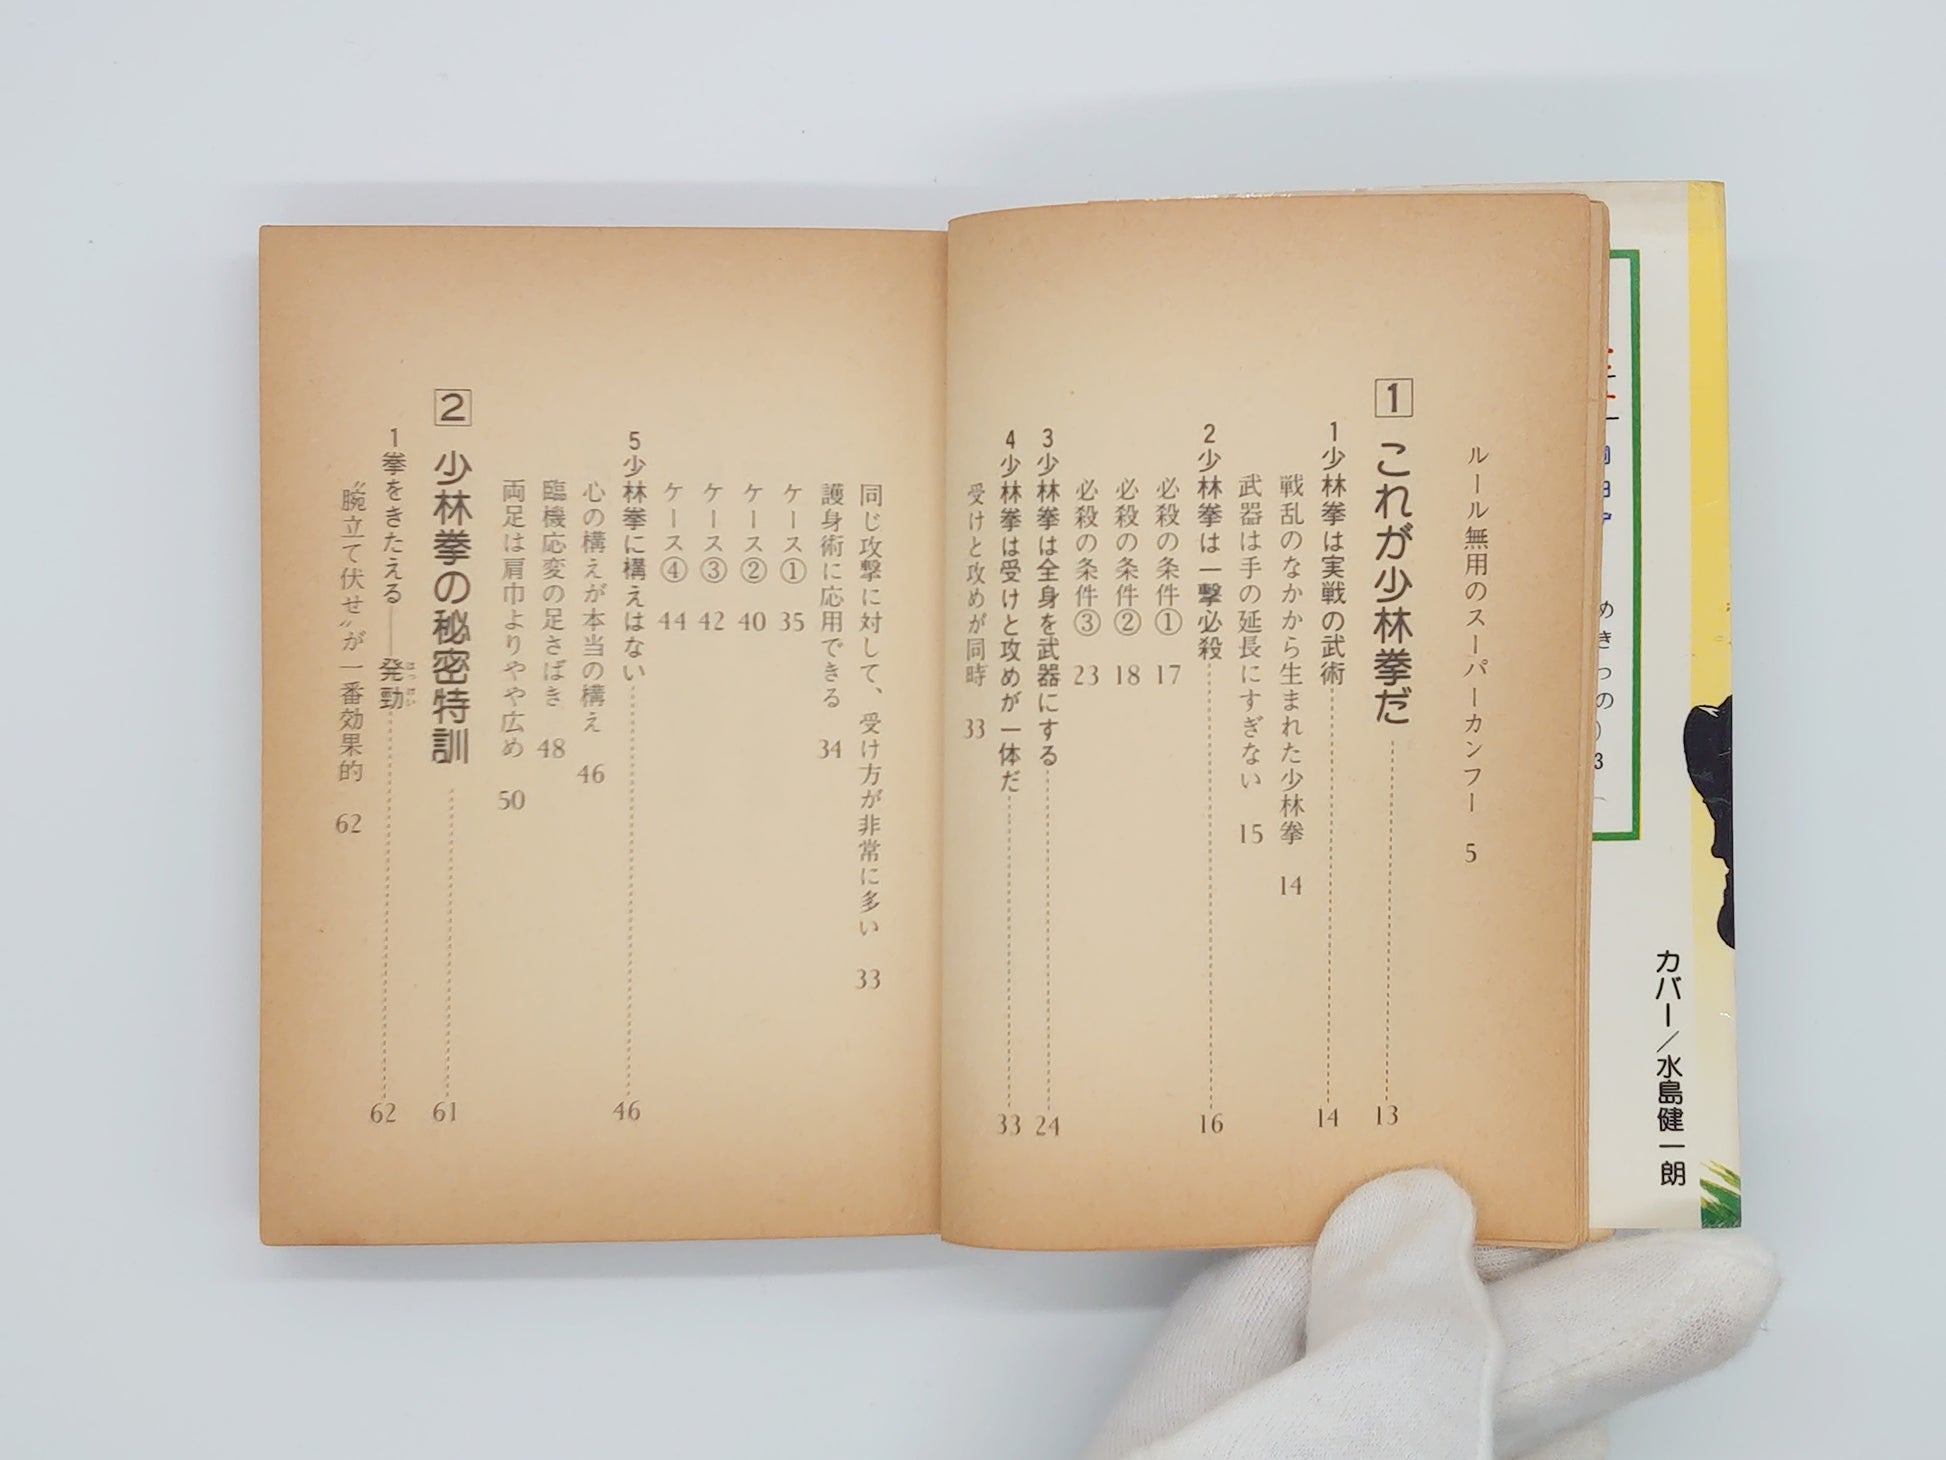 カバー/水島健一朗
ルール無用のスーパーカンフー 5
1 これが少林拳だ 13
1 少林拳は実戦の武術 14
戦乱のなかから生まれた少林拳 14
武器は手の延長にすぎない 15
2 少林拳は一撃必殺 16
必殺の条件① 17
必殺の条件② 18
必殺の条件③ 23
3 少林拳は全身を武器にする 24
4 少林拳は受けと攻めが一体だ 33
受けと攻めが同時 33
同じ攻撃に対して、受け方が非常に多い 33
護身術に応用できる 34
ケース① 35
ケース② 40
ケース③ 42
ケース④ 44
5 少林拳に構えはない 46
心の構えが本当の構え 46
臨機応変の足さばき 48
両足は肩巾よりやや広め 50
2 少林拳の秘密特訓 61
1 拳をきたえる――発勁 62
〝腕立て伏せ〟が一番効果的 62